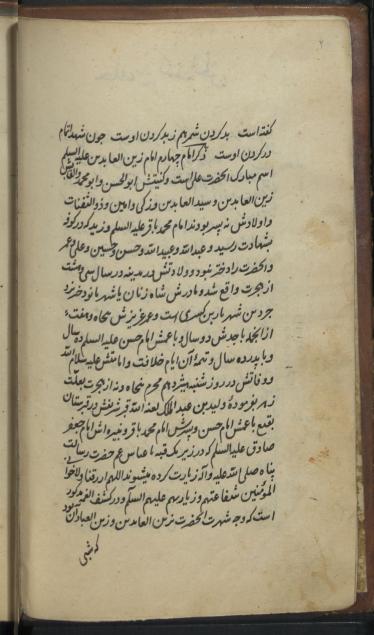 کفته است بد کردن شمر هم زبد کردن اوست جون شهد اتمام
در کردن اوست ذکر امام چهارم امام زین العابدین علیه السلم
اسم مبارک انحضرت علی است وکنیتش ابوالحسن وابو محمد والقابش
زین العابدین وسید العابدین وزکی وامین وذوالثفنات
واولادش نه پسر بودند امام محمد باقر علیه السلم وزید که در کوفه
بشهادت رسید وعبدالله وعبیدالله وحسن وحسین وعلی وعمر
وانحضرت را دختر نبود وولادتش در مدینه در سال سی وهشت
از هجرت واقع شد ومادرش شاه زنان یا شهر بانو دختر یزد
جرد بن شهریار بن کسری است وعمر عزیزش پنجاه وهفت
از انجمله با جدش دو سال وبا عمش امام حسن علیه السلم ده سال
وبا پدر ده سال وتتمهٔ آن ایام خلافت وامامتش علیه سلام الله
ووفاتش در روز شنبه هیژدهم محرم پنجاه ونه از هجرت بعلت
زهر بفرمودهٔ ولید بن عبد الملک لعنه الله قبر شریفش در قبرستان
بقیع با عمش امام حسن وپسرش امام محمد باقر ونبیره اش امام جعفر
صادق علیه السلم که در زیر یک قبه با عباس عم حضرت رسالت
پناه صلی الله علیه وآله زیارت کرده میشوند اللهم ارزقنا ولاخواننا
المؤمنین شفاعتهم وزیارتهم علیهم السلم ودر کشف الغمه مذکور
است که وجه شهرت انحضرت بزین العابدین وزین العباد آن بود
که شبی